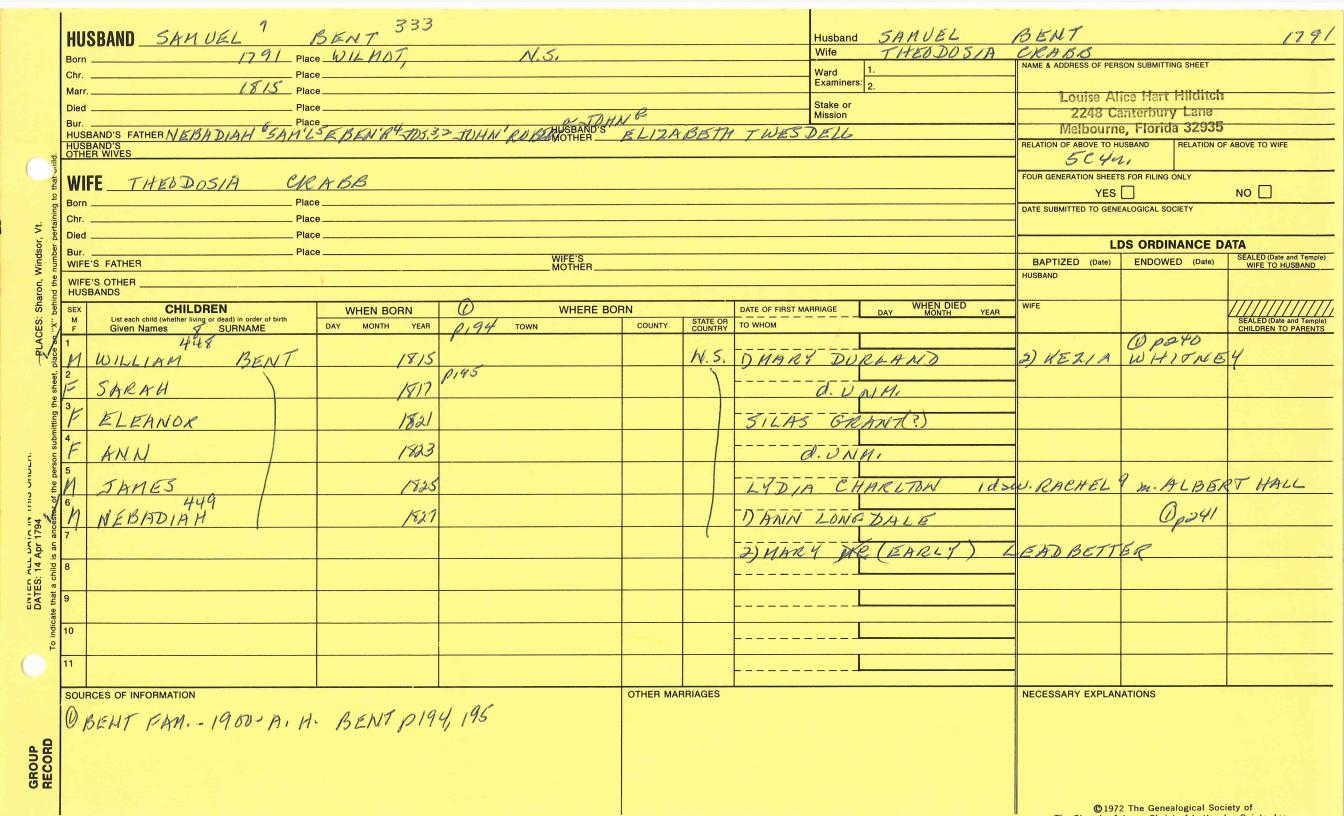 HUSBAND SAMUEL 7 BENT 333
Born 1791 Place WILMOT, N.S.
Chr. Place
Marr. 1815 Place
Died Place
Bur. Place
HUSBAND'S FATHER NEBADIAH 6 SAM'L 5 EBEN'R 4 JOS 3,2 JOHN 1 HUSBAND'S MOTHER ELIZABETH TWESDELL
HUSBAND'S OTHER WIVES
Husband SAMUEL BENT 1791
Wife THEODOSIA CRABB
Ward Examiners: 1.
2.
Stake or Mission
NAME & ADDRESS OF PERSON SUBMITTING SHEET
Louise Alice Hart Hilditch
2248 Canterbury Lane
Melbourne, Florida 32935
RELATION OF ABOVE TO HUSBAND RELATION OF ABOVE TO WIFE
5C4r.
FOUR GENERATION SHEETS FOR FILING ONLY
YES NO
DATE SUBMITTED TO GENEALOGICAL SOCIETY
WIFE THEODOSIA CRABB
Born Place
Chr. Place
Died Place
Bur. Place
WIFE'S FATHER WIFE'S MOTHER
WIFE'S OTHER HUSBANDS
LDS ORDINANCE DATA
BAPTIZED (Date) ENDOWED (Date) SEALED (Date and Temple) WIFE TO HUSBAND
HUSBAND
WIFE
SEALED (Date and Temple) CHILDREN TO PARENTS
SEX M F CHILDREN WHEN BORN ① WHERE BORN DATE OF FIRST MARRIAGE WHEN DIED
List each child (whether living or dead) in order of birth
Given Names 8 SURNAME DAY MONTH YEAR p194 TOWN COUNTY STATE OR COUNTRY TO WHOM DAY MONTH YEAR
1 448 ① p240
M WILLIAM BENT 1815 N.S. 1) MARY DURLAND 2) KEZIA WHITNEY
2 p195
F SARAH 1817 d. UNM.
3
F ELEANOR 1821 SILAS GRANT(?)
4
F ANN 1823 d. UNM.
5
M JAMES 1825 LYDIA CHARLTON 1 dau. RACHEL 9 m. ALBERT HALL
6 449
M NEBADIAH 1827 1) ANN LONGDALE ① p241
7 2) MARY (EARLY) LEADBETTER
8
9
10
11
SOURCES OF INFORMATION OTHER MARRIAGES NECESSARY EXPLANATIONS
① BENT FAM. - 1900 - A. H. BENT p194, 195
©1972 The Genealogical Society of
PLACES: Sharon, Windsor, Vt.
DATES: 14 Apr 1794
GROUP RECORD